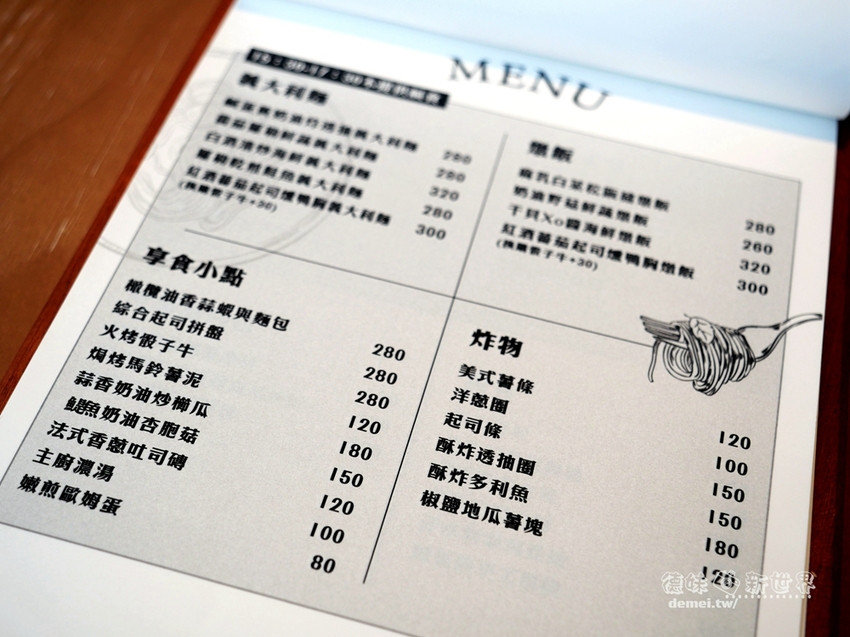 MENU
義大利麵
280
280
白酒清炒海鮮義大利麵 320
280
紅酒蕃茄起司燻鴨胸義大利麵 300
(換嫩骰子牛+30)
燉飯
280
奶油野菇鮮蔬燉飯 260
干貝Xo醬海鮮燉飯 320
紅酒蕃茄起司燻鴨胸燉飯 300
(換嫩骰子牛+30)
享食小點
橄欖油香蒜蝦與麵包 280
綜合起司拼盤 280
火烤骰子牛 280
焗烤馬鈴薯泥 120
蒜香奶油炒櫛瓜 180
鯷魚奶油杏胞菇 150
法式香蔥吐司磚 120
主廚濃湯 100
嫩煎歐姆蛋 80
炸物
美式薯條 120
洋蔥圈 100
起司條 150
酥炸透抽圈 150
酥炸多利魚 180
椒鹽地瓜薯塊 120
德味 新世界
demei.tw/